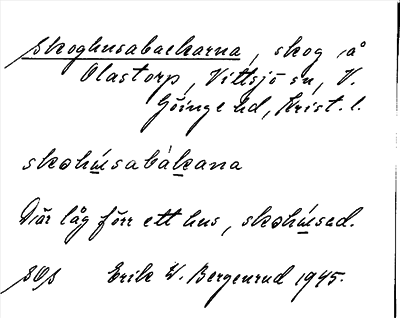 Skoghusabackarna, skog å
Olastorp, Vittsjö sn, V.
Göinge hd, Krist. l.
skohúsabákana
Där låg förr ett hus, skohúsed.
Erik W. Bergenrud 1945.